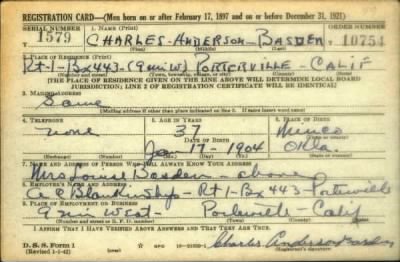 REGISTRATION CARD—(Men born on or after February 17, 1897 and on or before December 31, 1921)
SERIAL NUMBER 1. NAME (Print) ORDER NUMBER
1579 CHARLES-ANDERSON-BASDEN 10754
(First) (Middle) (Last)
2. PLACE OF RESIDENCE (Print)
Rt-1-Box 443-(9 mi W) PORTERVILLE-CALIF
(Number and street) (Town, township, village, or city) (County) (State)
[THE PLACE OF RESIDENCE GIVEN ON THE LINE ABOVE WILL DETERMINE LOCAL BOARD
JURISDICTION; LINE 2 OF REGISTRATION CERTIFICATE WILL BE IDENTICAL]
3. MAILING ADDRESS
Same
[Mailing address if other than place indicated on line 2. If same insert word same]
4. TELEPHONE 5. AGE IN YEARS 6. PLACE OF BIRTH
none 37 Minco
DATE OF BIRTH (Town or county)
Jan-17-1904 Okla.
(Exchange) (Number) (Mo.) (Day) (Yr.) (State or country)
7. NAME AND ADDRESS OF PERSON WHO WILL ALWAYS KNOW YOUR ADDRESS
Mrs Louise Basden-above
8. EMPLOYER'S NAME AND ADDRESS
Blankinship-Rt 1-Bx 443-Porterville
9. PLACE OF EMPLOYMENT OR BUSINESS
9 mi West- Porterville-Calif
(Number and street or R. F. D. number) (Town) (County) (State)
I AFFIRM THAT I HAVE VERIFIED ABOVE ANSWERS AND THAT THEY ARE TRUE.
D. S. S. Form 1
(Revised 1-1-42) Charles Anderson Basden